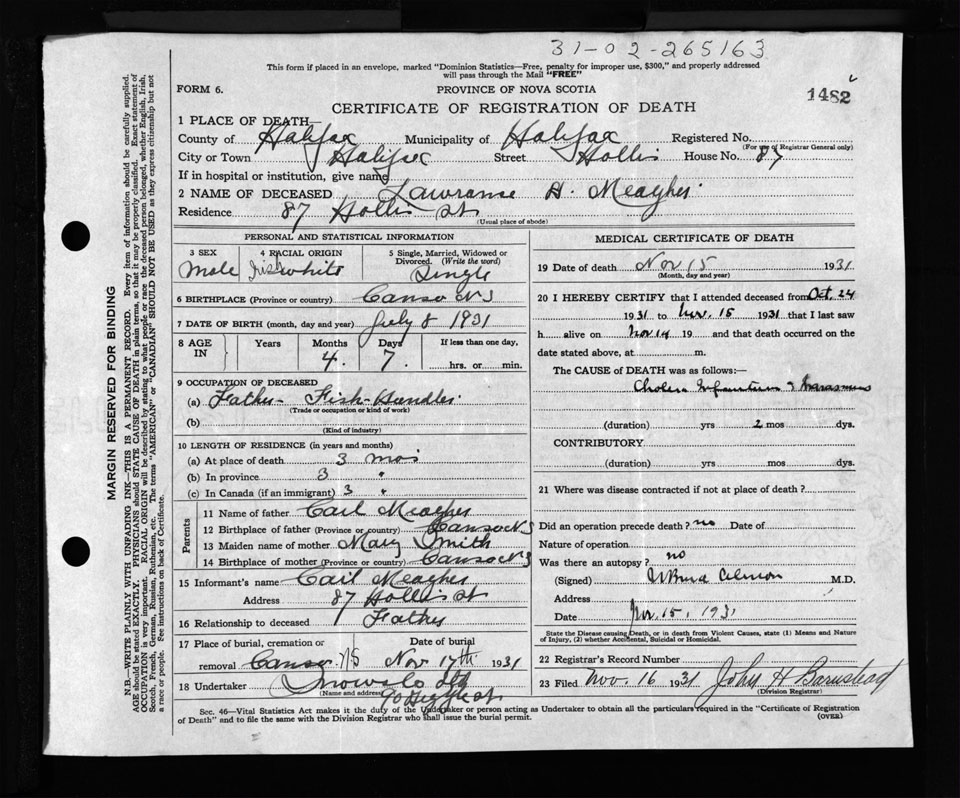 31-02-265163
This form if placed in an envelope, marked "Dominion Statistics—Free, penalty for improper use, $300," and properly addressed
will pass through the Mail "FREE"
FORM 6.
PROVINCE OF NOVA SCOTIA
1482
CERTIFICATE OF REGISTRATION OF DEATH
1 PLACE OF DEATH—
County of Halifax Municipality of Halifax Registered No.
(For use of Registrar General only)
City or Town Halifax Street Hollis House No. 87
If in hospital or institution, give name
2 NAME OF DECEASED Lawranse A. Meagher
Residence 87 Hollis St
(Usual place of abode)
PERSONAL AND STATISTICAL INFORMATION
3 SEX 4 RACIAL ORIGIN 5 Single, Married, Widowed or
Divorced. (Write the word)
Male Irish white Single
6 BIRTHPLACE (Province or country) Canso NS
7 DATE OF BIRTH (month, day and year) July 8 1931
8 AGE IN Years Months Days If less than one day,
4. 7. hrs. or min.
9 OCCUPATION OF DECEASED
(a) Father - Fish-Handler
(Trade or occupation or kind of work)
(b)
(Kind of industry)
10 LENGTH OF RESIDENCE (in years and months)
(a) At place of death 3 mos
(b) In province 3 "
(c) In Canada (if an immigrant) 3 "
Parents
11 Name of father Carl Meagher
12 Birthplace of father (Province or country) Canso NS
13 Maiden name of mother Mary Smith
14 Birthplace of mother (Province or country) Canso NS
15 Informant's name Carl Meagher
Address 87 Hollis St
16 Relationship to deceased Father
17 Place of burial, cremation or Date of burial
removal Canso NS Nov 17th 1931
18 Undertaker Snow & Co Ltd
(Name and address) 90 Argyle St
MEDICAL CERTIFICATE OF DEATH
19 Date of death Nov 15 1931
(Month, day and year)
20 I HEREBY CERTIFY that I attended deceased from Oct. 24
1931 to Nov. 15 1931 that I last saw
h alive on Nov 14 19 and that death occurred on the
date stated above, at m.
The CAUSE of DEATH was as follows:—
Cholera Infantum & Marasmus
(duration) yrs 2 mos dys.
CONTRIBUTORY
(duration) yrs mos dys.
21 Where was disease contracted if not at place of death?
Did an operation precede death? no Date of
Nature of operation
Was there an autopsy? no
(Signed) Almon M.D.
Address
Date Nov. 15, 1931
State the Disease causing Death, or in death from Violent Causes, state (1) Means and Nature
of Injury, (2) whether Accidental, Suicidal or Homicidal.
22 Registrar's Record Number
23 Filed Nov. 16 1931 John H Barnstead
(Division Registrar)
Sec. 46—Vital Statistics Act makes it the duty of the Undertaker or person acting as Undertaker to obtain all the particulars required in the "Certificate of Registration
of Death" and to file the same with the Division Registrar who shall issue the burial permit.
(OVER)
MARGIN RESERVED FOR BINDING
N.B.—WRITE PLAINLY WITH UNFADING INK—THIS IS A PERMANENT RECORD. Every item of information should be carefully supplied.
AGE should be stated EXACTLY. PHYSICIANS should STATE CAUSE OF DEATH in plain terms, so that it may be properly classified. Exact statement of
OCCUPATION very important. RACIAL ORIGIN will be described by stating to what people or race the deceased person belonged, whether English, Irish,
Scotch, French, German, Russian, Ruthenian, etc. The terms "AMERICAN" or "CANADIAN" SHOULD NOT BE USED as they express citizenship but not
a race or people. See instructions on back of Certificate.